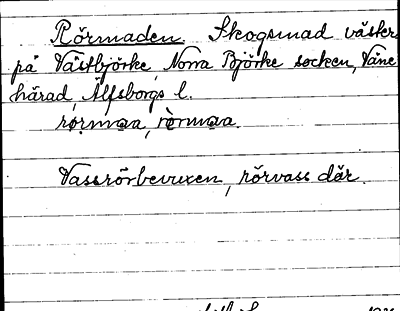 Rörmaden. Skogsmad väster
på Västbjörke, Norra Björke socken, Väne
härad, Älfsborgs l.
Vassrörbevuxen, rörvass där.